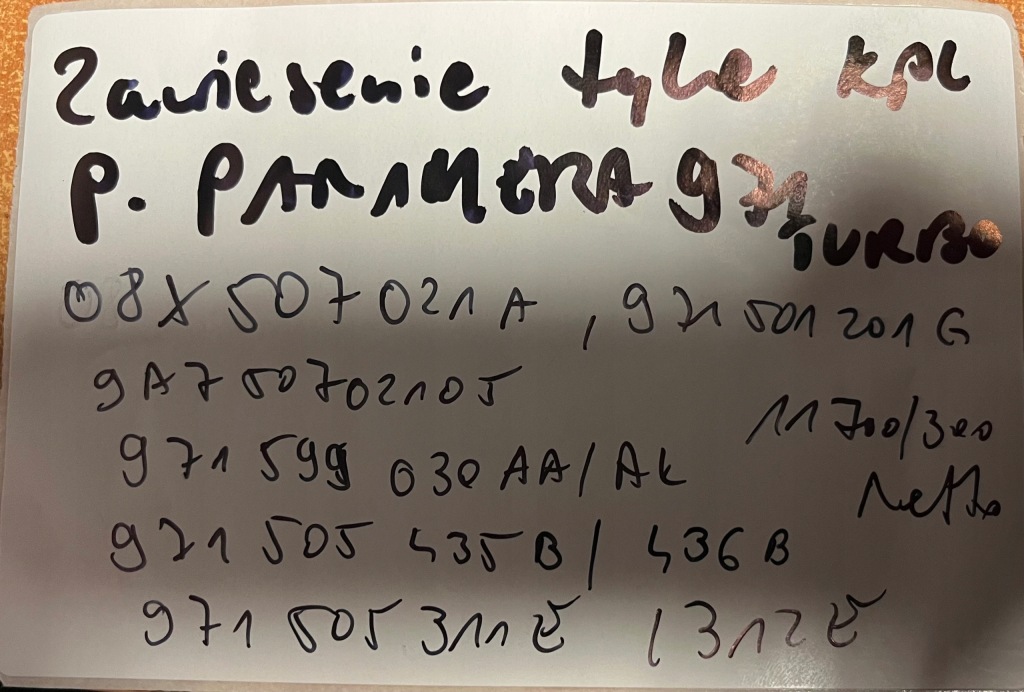 Zawiesenie tylne kpl
P. PANAMERA 971
TURBO
08X 507 021A , 971 501 201 G
9A7 50702105
11 700/300
971 599 030 AA/AK
Netto
971 505 435 B / 436 B
971 505 311 E / 312 E